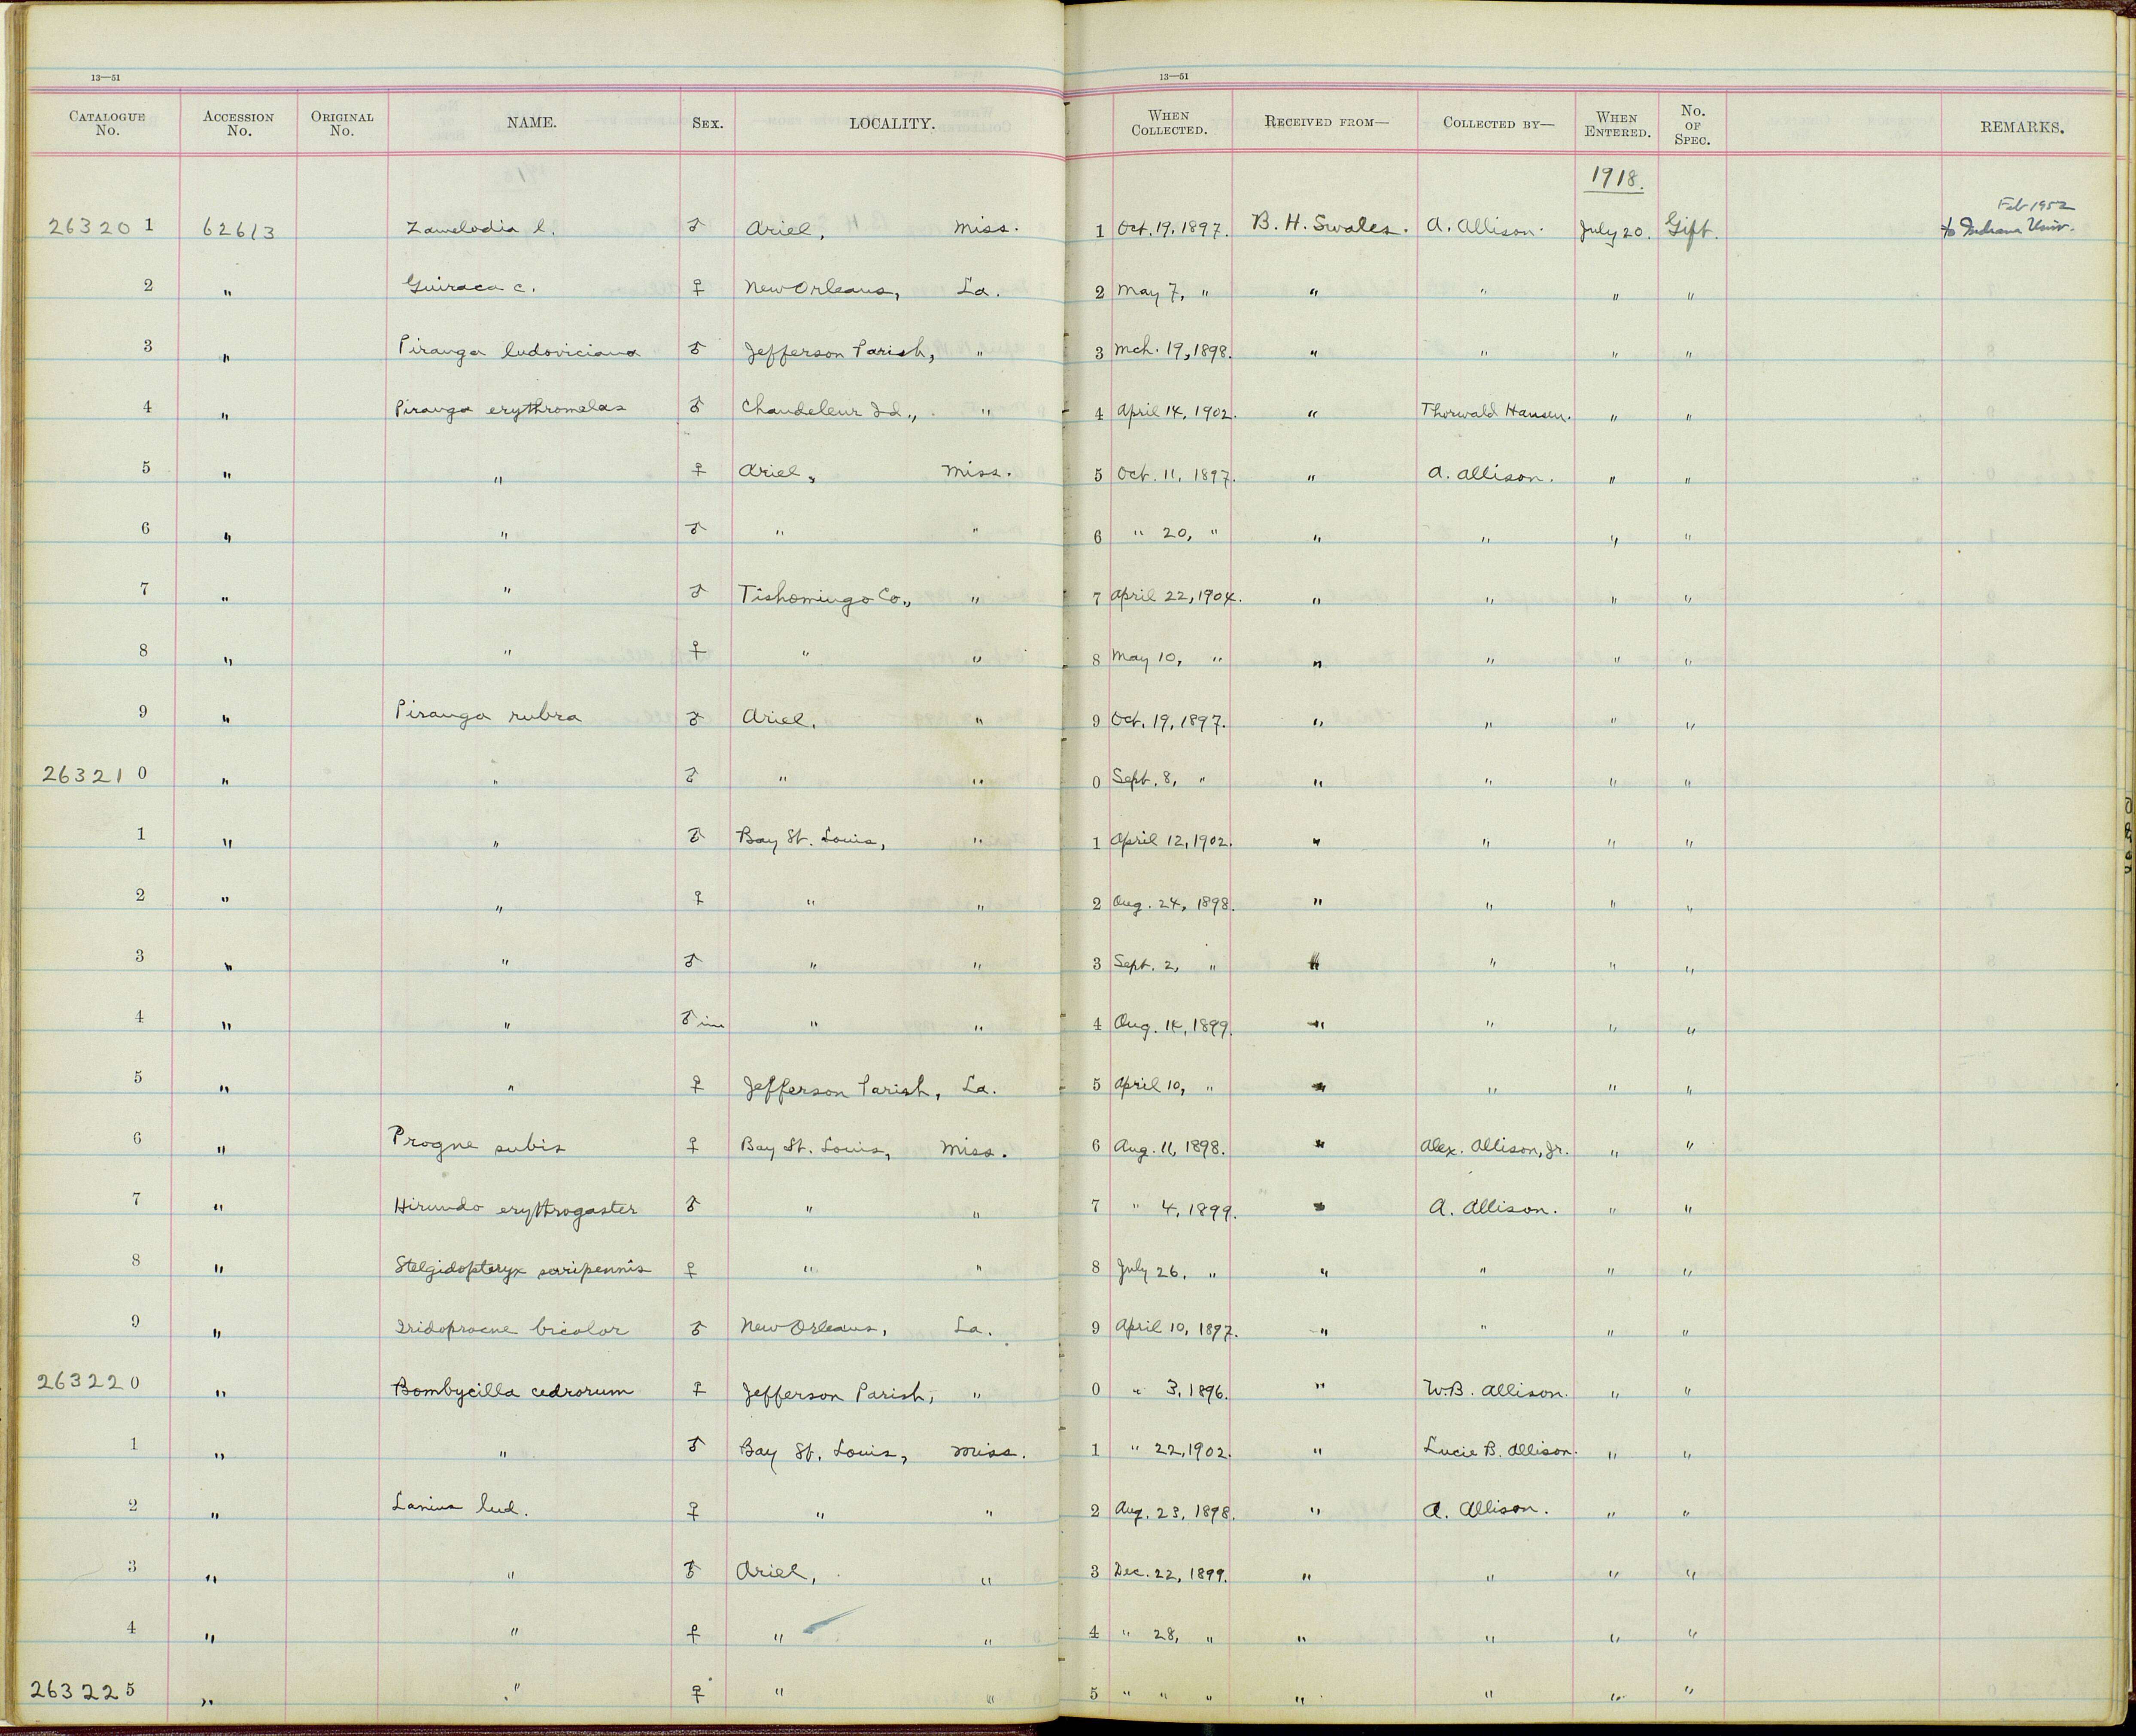 13—51 13—51
CATALOGUE No. ACCESSION No. ORIGINAL No. NAME. SEX. LOCALITY. WHEN COLLECTED. RECEIVED FROM— COLLECTED BY— WHEN ENTERED. No. OF SPEC. REMARKS.
1918.
Feb 1952
26320 1 62613 Zamelodia l. ♂ Ariel, Miss. 1 Oct. 19, 1897. B. H. Swales. A. Allison. July 20. Gift. to Indiana Univ.
2 " Guiraca c. ♀ New Orleans, La. 2 May 7, " " " " "
3 " Piranga ludoviciana ♂ Jefferson Parish, " 3 Mch. 19, 1898. " " " "
4 " Piranga erythromelas ♂ Chandeleur Id., " 4 April 14, 1902. " Thorwald Hansen. " "
5 " " ♀ Ariel, Miss. 5 Oct. 11, 1897. " A. Allison. " "
6 " " ♂ " " 6 " 20, " " " " "
7 " " ♂ Tishomingo Co., " 7 April 22, 1904. " " " "
8 " " ♀ " " 8 May 10, " " " " "
9 " Piranga rubra ♂ Ariel, " 9 Oct. 19, 1897. " " " "
26321 0 " " ♂ " " 0 Sept. 8, " " " " "
1 " " ♂ Bay St. Louis, " 1 April 12, 1902. " " " "
2 " " ♀ " " 2 Aug. 24, 1898. " " " "
3 " " ♂ " " 3 Sept. 2, " " " " "
4 " " ♂ im " " 4 Aug. 14, 1899. " " " "
5 " " ♀ Jefferson Parish, La. 5 April 10, " " " " "
6 " Progne subis ♀ Bay St. Louis, Miss. 6 Aug. 11, 1898. " Alex. Allison, Jr. " "
7 " Hirundo erythrogaster ♂ " " 7 " 4, 1899. " A. Allison. " "
8 " Stelgidopteryx serripennis ♀ " " 8 July 26, " " " " "
9 " Iridoprocne bicolor ♂ New Orleans, La. 9 April 10, 1897. " " " "
26322 0 " Bombycilla cedrorum ♀ Jefferson Parish, " 0 " 3, 1896. " W.B. Allison. " "
1 " " ♂ Bay St. Louis, Miss. 1 " 22, 1902. " Lucie B. Allison. " "
2 " Lanius lud. ♀ " " 2 Aug. 23, 1898. " A. Allison. " "
3 " " ♂ Ariel, " 3 Dec. 22, 1899. " " " "
4 " " ♀ " " 4 " 28, " " " " "
26322 5 " " ♀ " " 5 " " " " " " "